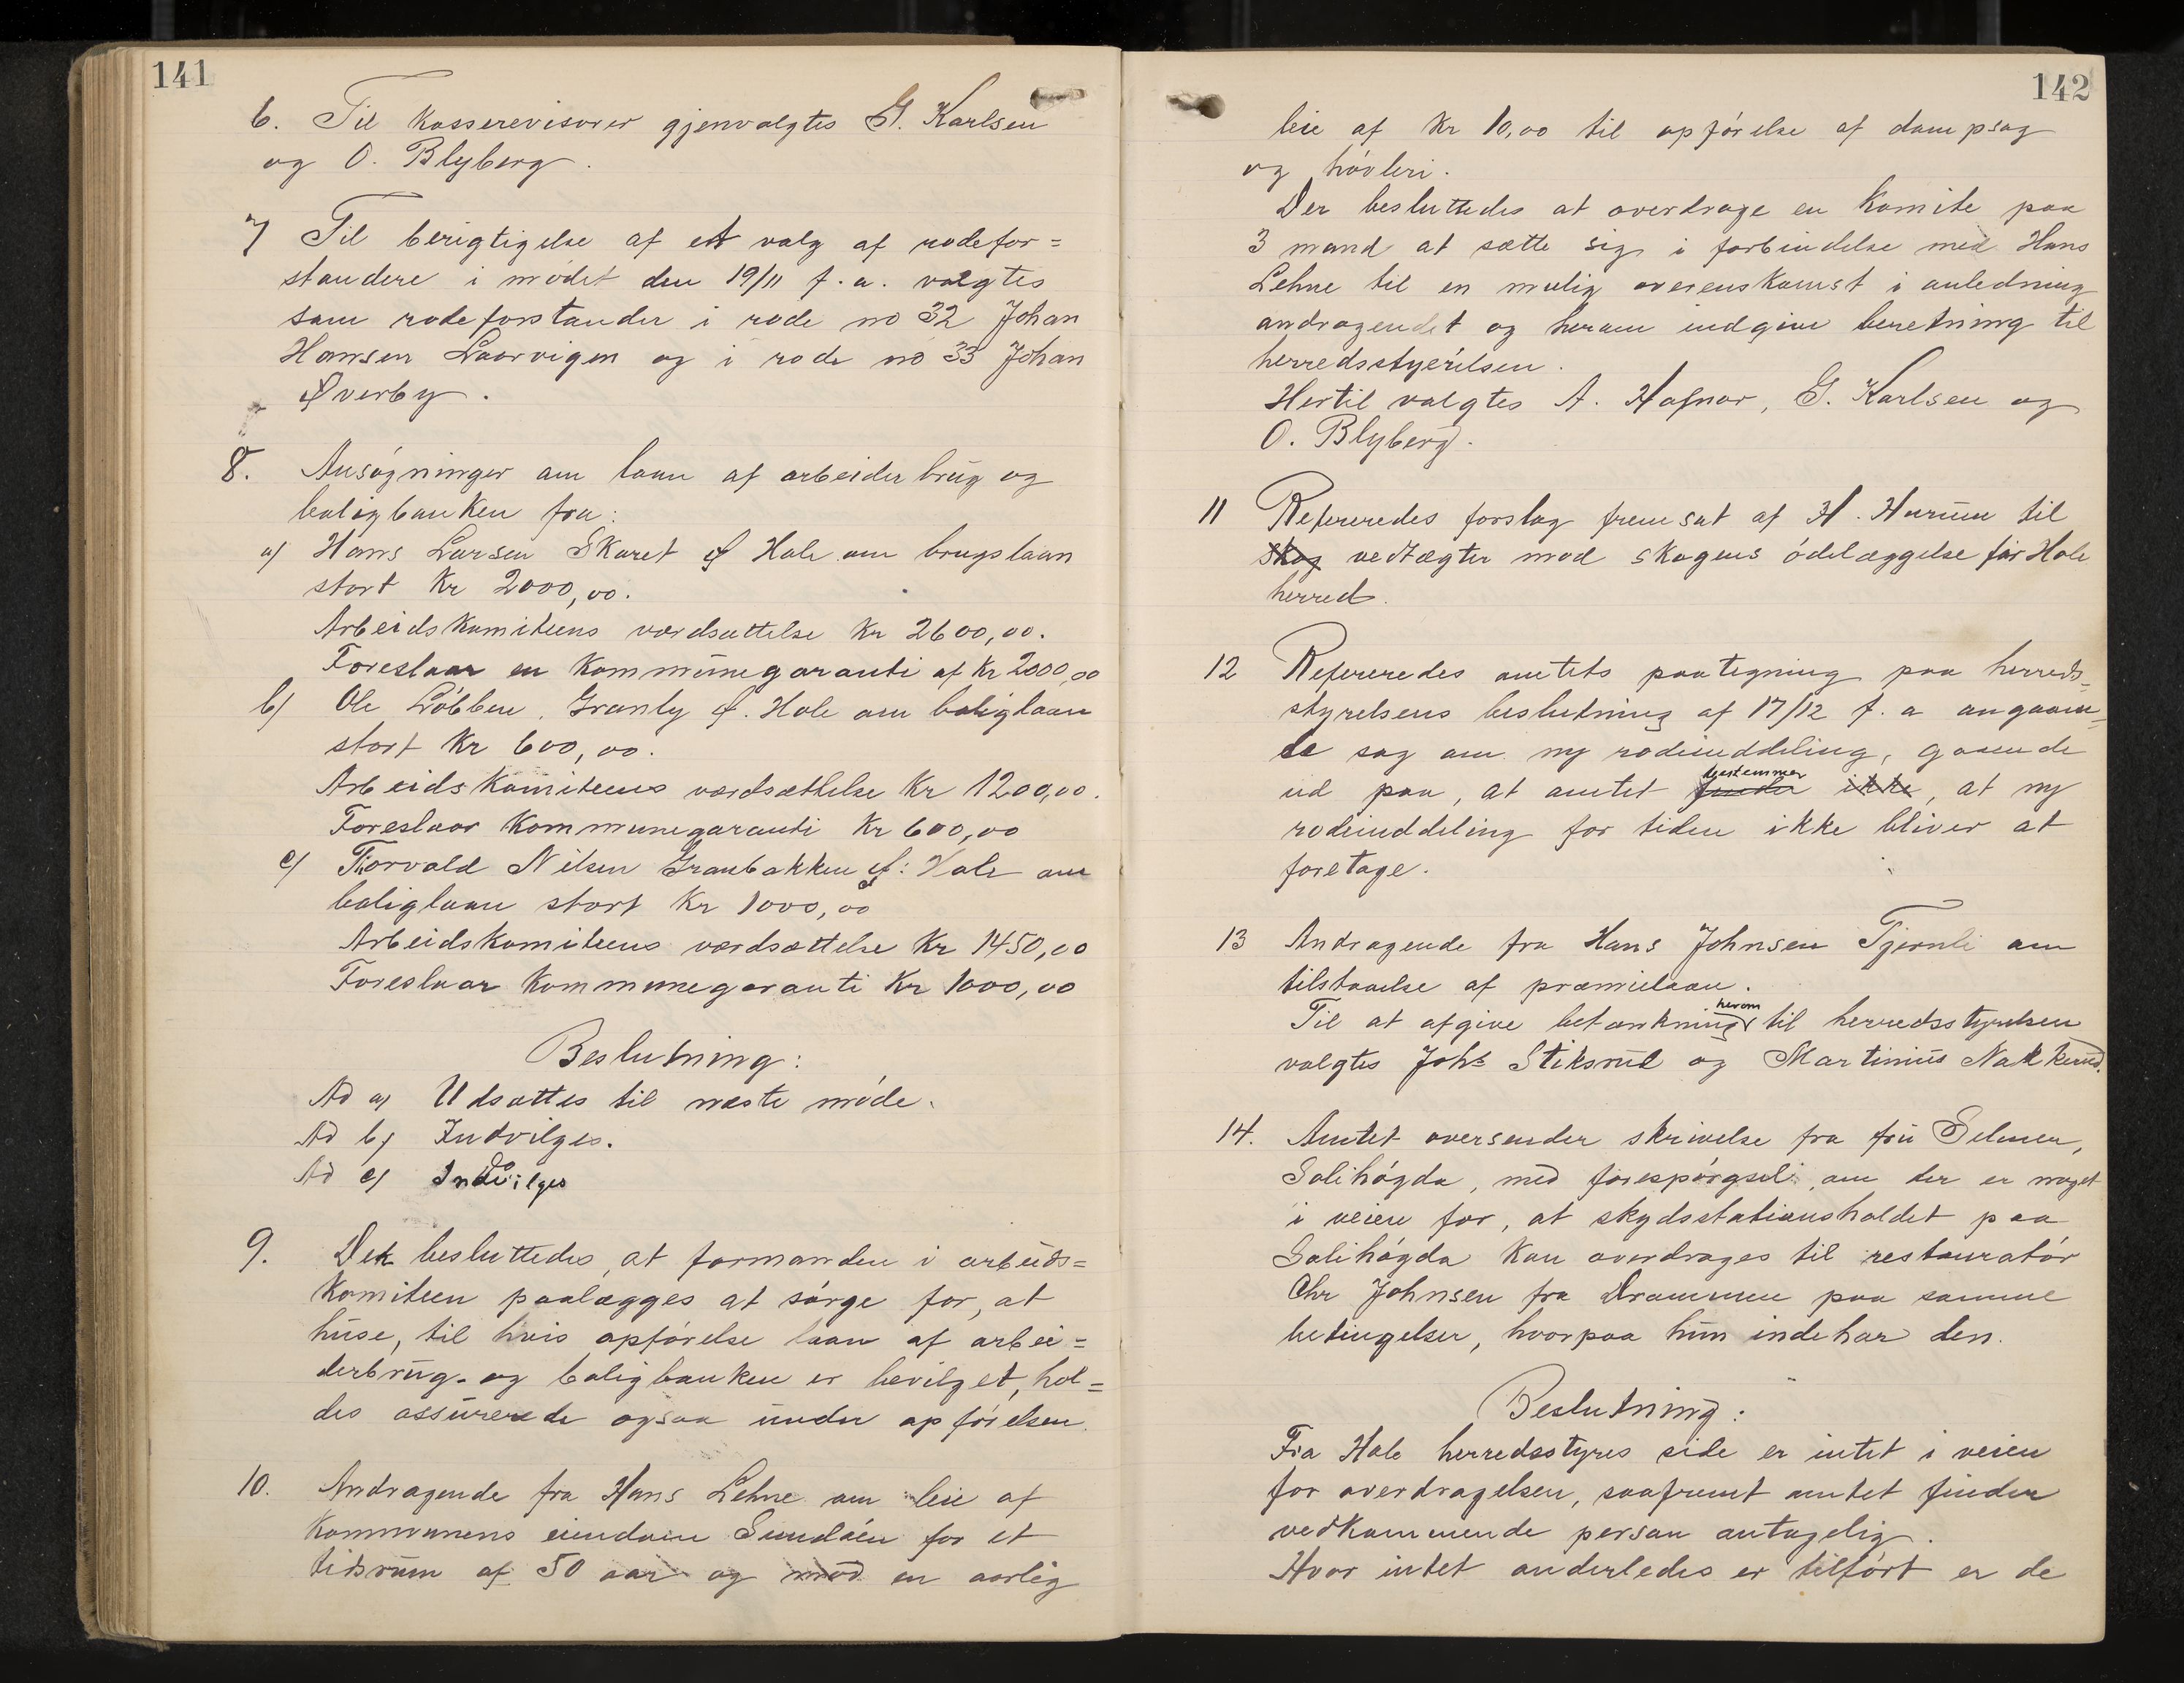 141
6. Til kasserevisorer gjenvalgtes G. Karlsen
og O. Blyberg.
7) Til berigtigelse af et valg af rodefor=
standere i mødet den 19/11 f. a. valgtes
som rodeforstander i rode no 32 Johan
Hansen Laarvigen og i rode no 33 Johan
Øverby.
8. Ansøgninger om laan af arbeiderbrug og
boligbanken fra:
a) Hans Larsen Skaret pf Hole om brugslaan
stort Kr 2000,00.
Arbeidskomiteens værdsættelse Kr 2600,00.
Foreslaar en kommunegaranti af Kr 2000,00
b) Ole Løbben, Granly pf. Hole om boliglaan
stort Kr 600,00.
Arbeidskomiteens værdsættelse Kr 1200,00.
Foreslaar Kommunegaranti Kr 600,00
c) Thorvald Nilsen Granbakken pf: Hole om
boliglaan stort Kr 1000,00
Arbeidskomiteens værdsættelse Kr 1450,00
Foreslaar kommunegaranti Kr 1000,00
Beslutning:
Ad a) Udsættes til næste møde.
Ad b) Indvilges.
Ad c) Indvilges
9. Det besluttedes, at formanden i arbeids=
komiteen paalægges at sørge for, at
huse, til hvis opførelse laan af arbei=
derbrug- og boligbanken er bevilget, hol=
des assurerede ogsaa under opførelsen.
10. Andragende fra Hans Lehne om leie af
kommunens eiendom Sundøen for et
tidsrum af 50 aar og mod en aarlig
142
leie af Kr 10,00 til opførelse af dampsag
og høvleri.
Der besluttedes at overdrage en komite paa
3 mand at sætte sig i forbindelse med Hans
Lehne til en mulig overenskomst i anledning
andragendet og herom indgive beretning til
herredsstyrelsen.
Hertil valgtes A. Hafnor, G. Karlsen og
O. Blyberg.
11 Refereredes forslag fremsat af H. Hurum til
skog vedtægter mod skogens ødelæggelse for Hole
herred.
12 Refereredes amtets paategning paa herreds=
styrelsens beslutning af 17/12 f. a angaaen=
de sag om ny rodeinddeling, gaaende
ud paa, at amtet finder bestemmer ikke, at ny
rodeinddeling for tiden ikke bliver at
foretage.
13 Andragende fra Hans Johnsen Tjernli om
tilstaaelse af præmielaan.
Til at afgive betænkning herom til herredsstyrelsen
valgtes Johs Stiksrud og Martinius Nakkerud.
14. Amtet oversender skrivelse fra fru Selmer,
Solihøgda, med forespørgsel, om der er noget
i veien for, at skydsstationsholdet paa
Solihøgda kan overdrages til restauratør
Chr Johnsen fra Drammen paa samme
betingelser, hvorpaa hun indehar den.
Beslutning:
Fra Hole herredsstyres side er intet i veien
for overdragelsen, saafremt amtet finder
vedkommende person antagelig.
Hvor intet anderledes er tilført er de